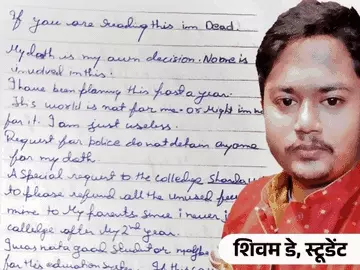 If you are reading this im Dead.
My dath is my own decision. No one is
involved in this.
I have been planning this past a year.
This world is not for me. or Might im no
for it. I am just useless.
Request for police do not detain anyone
for my death.
A Special request to the colledge Sharda U
to please refund all the unused fee
mine to My parents since i never
colledge after My 2nd year.
I was not a good student or maybe
for this education
शिवम डे, स्टूडेंट